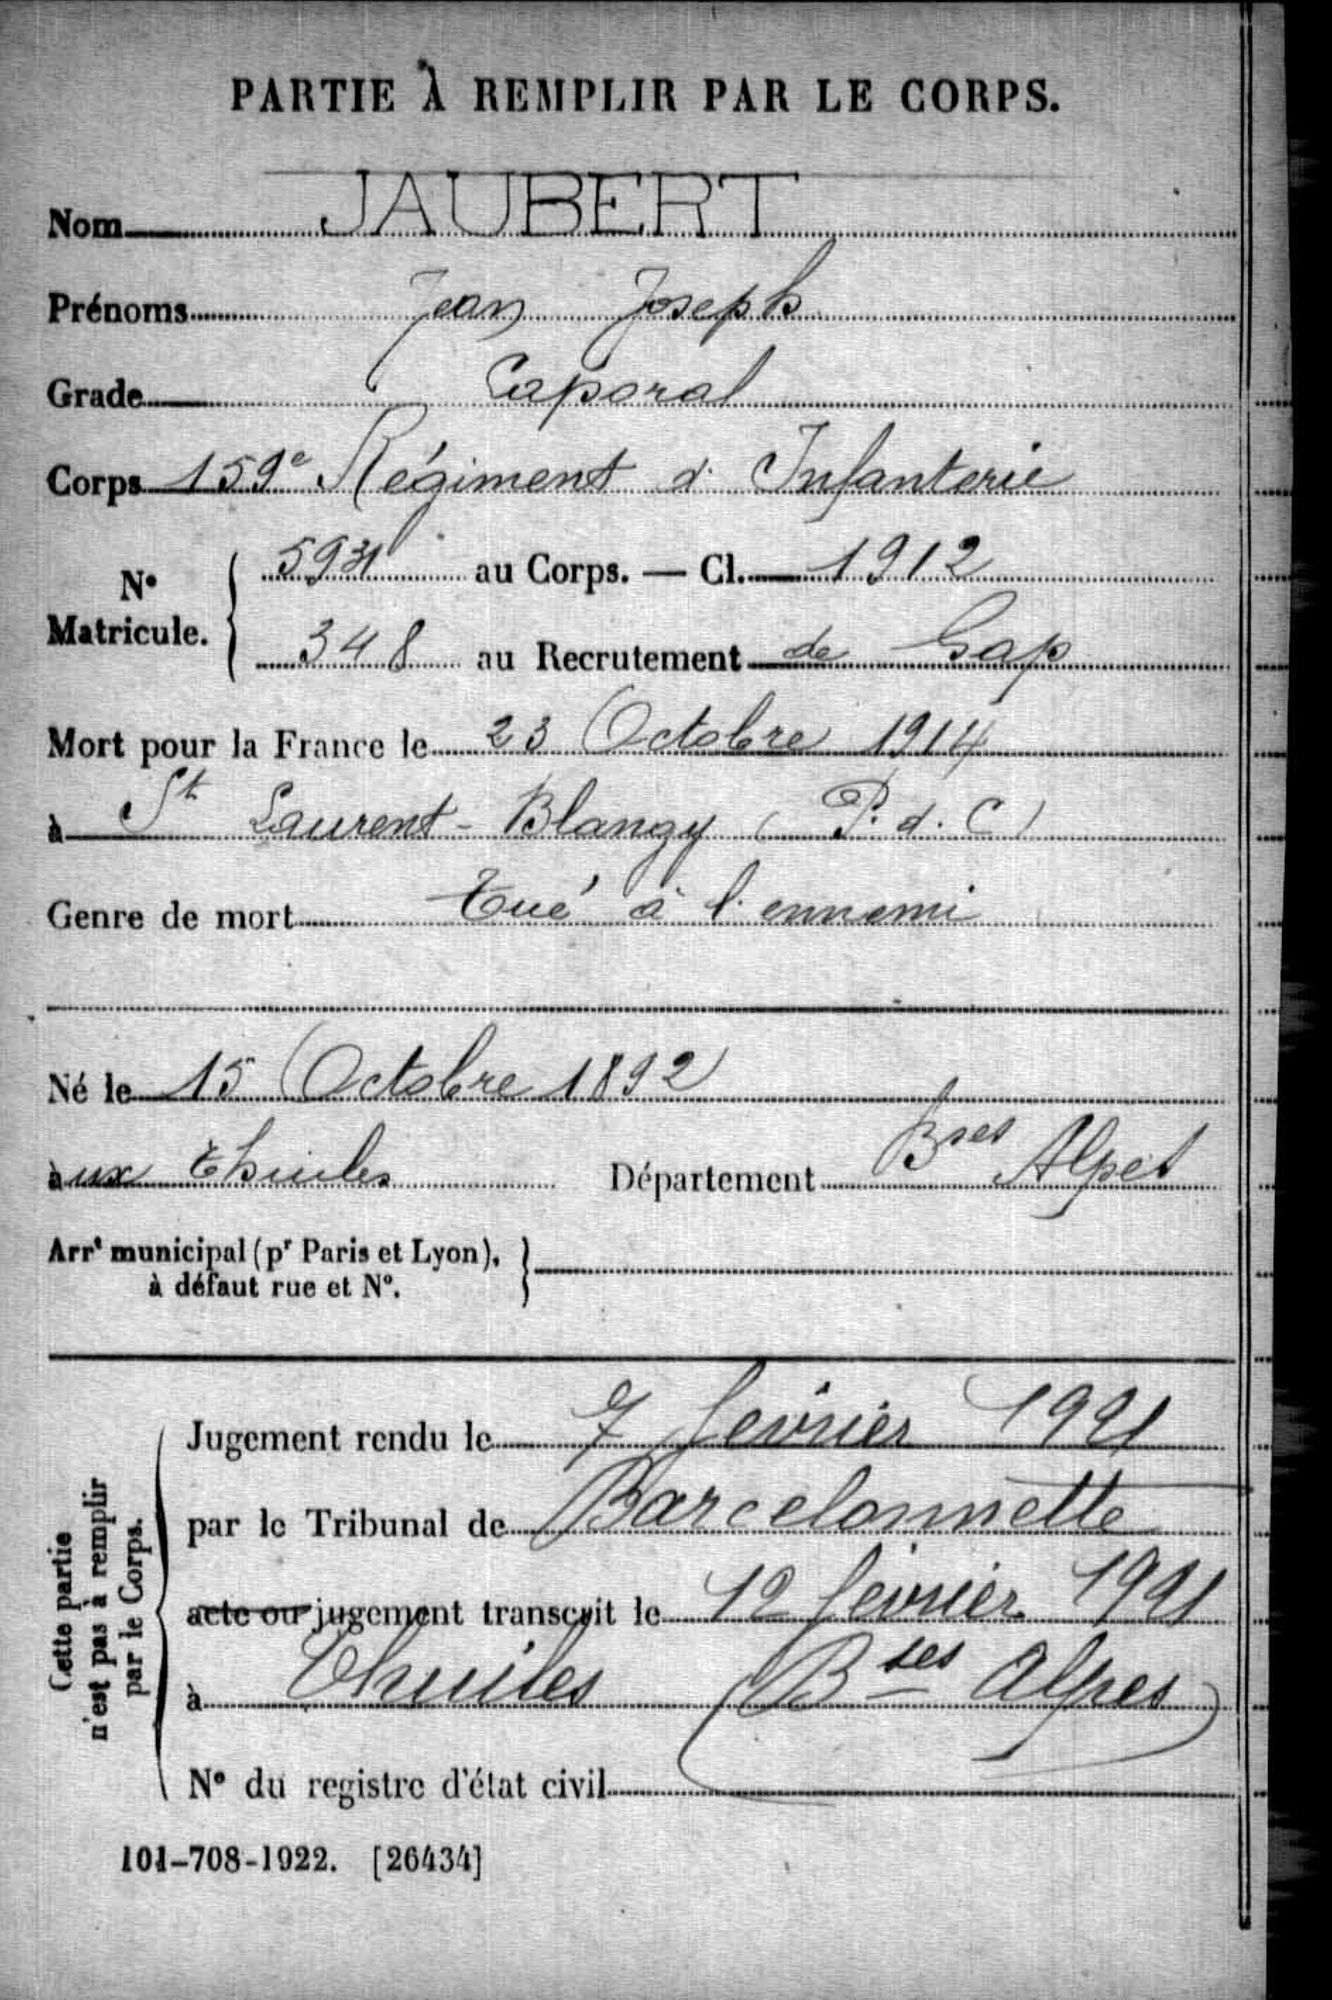 PARTIE À REMPLIR PAR LE CORPS.
Nom JAUBERT
Prénoms Jean Joseph
Grade Caporal
Corps 159e Régiment d'Infanterie
N° Matricule. { 5931 au Corps. — Cl. 1912
348 au Recrutement de Gap
Mort pour la France le 23 Octobre 1914
à St Laurent-Blangy (P. d. C)
Genre de mort Tué à l'ennemi
Né le 15 Octobre 1892
aux Thuiles Département Bses Alpes
Arrt municipal (pr Paris et Lyon), à défaut rue et N°. }
Cette partie n'est pas à remplir par le Corps.
Jugement rendu le 7 février 1921
par le Tribunal de Barcelonnette
acte ou jugement transcrit le 12 février 1921
à Thuiles (Bses Alpes)
N° du registre d'état civil
101-708-1922. [26434]